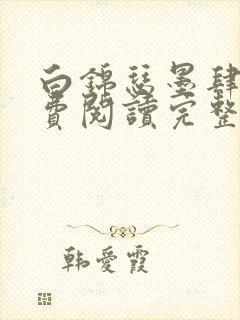 白錦瑟墨肆
費閱讀完整
韩愛霞